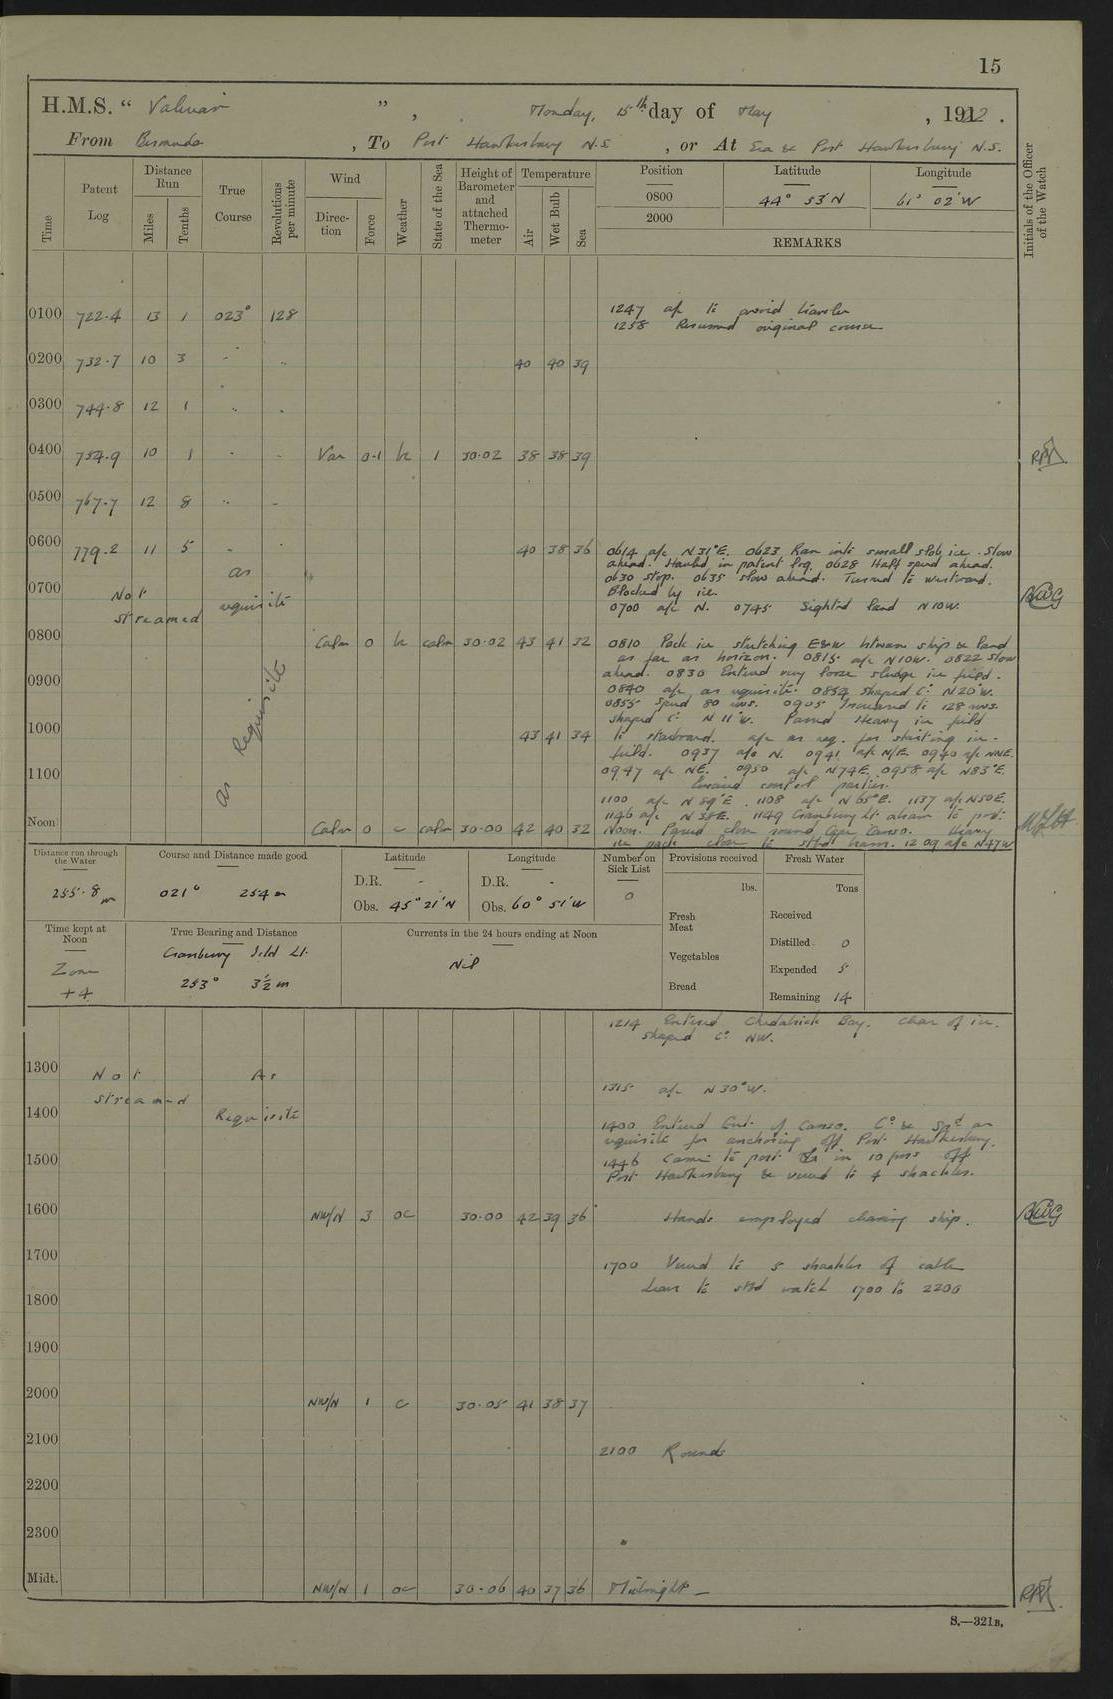 15
H.M.S. " Valerian " , Monday, 15th day of May , 1922 .
From Bermuda , To Port Hawkesbury N.S. , or At Sea & Port Hawkesbury N.S.
Time
Patent Log
Distance Run
Miles
Tenths
True Course
Revolutions per minute
Wind
Direction
Force
Weather
State of the Sea
Height of Barometer and attached Thermometer
Temperature
Air
Wet Bulb
Sea
Position
0800
2000
Latitude
44° 53' N
Longitude
61° 02' W
REMARKS
Initials of the Officer of the Watch
0100 722.4 13 1 023° 128
1247 a/c to avoid trawler
1258 Resumed original course
0200 732.7 10 3 " " 40 40 39
0300 744.8 12 1 " "
0400 754.9 10 1 " " Var 0-1 bc 1 30.02 38 38 39
0500 767.7 12 8 " "
0600 779.2 11 5 " " 40 38 36
0614 a/c N 31° E. 0623 Ran into small slob ice. Slow
ahead. Hauled in patent log. 0628 Half speed ahead.
0630 stop. 0635 slow ahead. Turned to westward.
Blocked by ice.
0700 Not streamed as requisite
0700 a/c N. 0745 Sighted land N10W.
0800 Calm 0 bc calm 30.02 43 41 32
0810 Pack ice stretching E&W between ship & land
as far as horizon. 0815 a/c N10W. 0822 slow
0900 as Requisite
ahead. 0830 Entered very loose sludge ice field.
0840 a/c as requisite. 0854 shaped Co. N20°W.
0855 Speed 80 revs. 0905 Increased to 128 revs.
shaped Co. N 11°W. Passed Heavy ice field
1000 43 41 34
to starboard. a/c as req. for skirting ice-
field. 0937 a/c N. 0941 a/c N/E. 0940 a/c NNE.
1100
0947 a/c NE. 0950 a/c N74E. 0958 a/c N83°E.
control parties.
1100 a/c N 89° E. 1108 a/c N 65° E. 1137 a/c N50E.
1146 a/c N 38E. 1149 Cranberry Lt. abeam to port.
Noon Calm 0 c calm 30.00 42 40 32
Noon. Passed close round Cape Canso. Heavy
ice pack close to stbd beam. 1209 a/c N47W
Distance run through the Water
255.8 m
Course and Distance made good
021° 254 m
Latitude
D.R. -
Obs. 45° 21' N
Longitude
D.R. -
Obs. 60° 51' W
Number on Sick List
0
Provisions received
lbs.
Fresh Meat
Vegetables
Bread
Fresh Water
Tons
Received
Distilled 0
Expended 5
Remaining 14
Time kept at Noon
Zone +4
True Bearing and Distance
Cranberry Isld Lt.
253° 3½ m
Currents in the 24 hours ending at Noon
Nil
1214 Entered Chedabucto Bay. Clear of ice.
shaped Co. NW.
1300 Not streamed As Requisite
1315 a/c N 30° W.
1400
1400 Entered Gut of Canso. Co. & Spd. as
requisite for anchoring off Port Hawkesbury.
1500
1446 Came to port in 10 fms off
Port Hawkesbury & veered to 4 shackles.
1600 NW/N 3 oc 30.00 42 39 36
Hands employed cleaning ship.
1700
1700 Veered to 5 shackles of cable
Leave to stbd watch 1700 to 2200
1800
1900
2000 NW/N 1 c 30.05 41 38 37
2100
2100 Rounds
2200
2300
Midt. NW/N 1 oc 30.06 40 37 36
Midnight —
S.—321B.